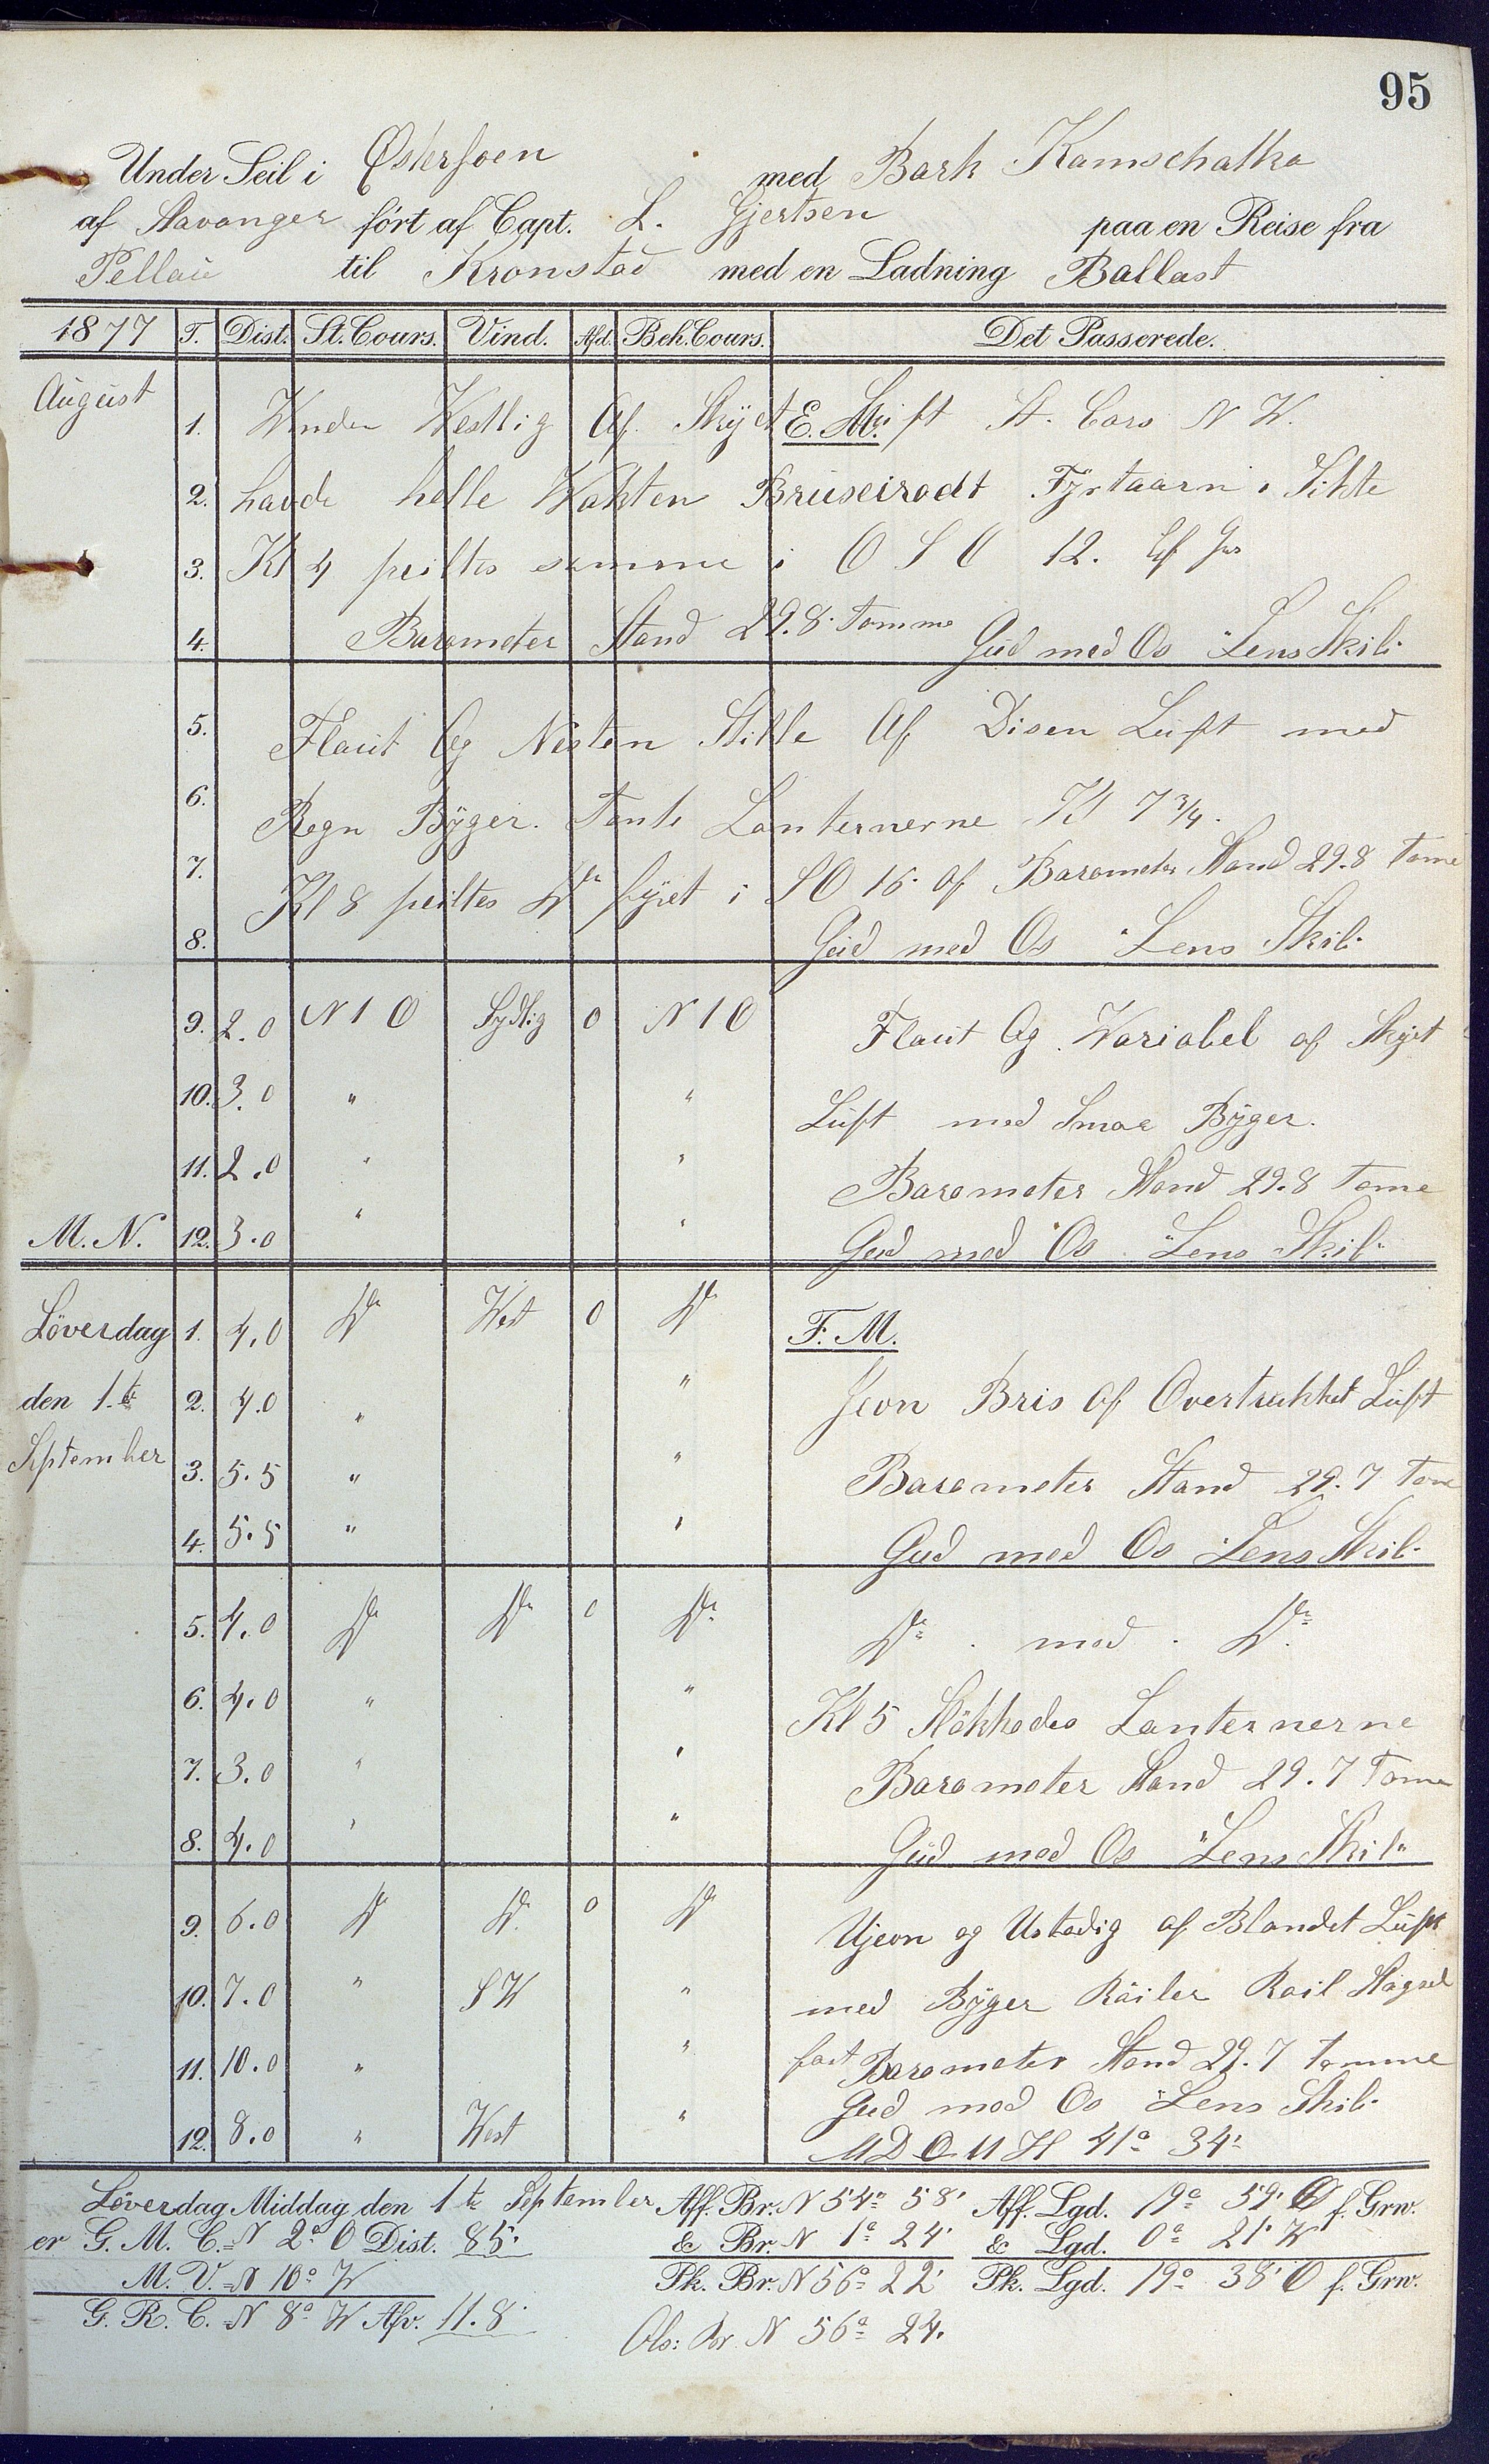 95
Under Seil i Østersoen med Bark Kamschatka
af Stavanger ført af Capt. L. Gjertsen paa en Reise fra
Pellau til Kronstad med en Ladning Ballast
1877 T. Dist. St. Cours. Vind. Afd. Beh. Cours. Det Passerede.
August 1. Winden Westlig Af Skyet E. M. Luft St. Cors N W.
2. havde helle Wakten Brüseirodt Fyrtaarn i Sikte
3. Kl 4 peiltes samme i O S O 12. Af Gis
4. Barometer Stand 29.8 Tomme Gud med Os Lens Skib
5. Flaut Og Nesten Stille Af Disen Luft med
6. Regn Byger. Tente Lanternerne Kl 7 3/4.
7. Kl 8 peiltes Do fyret i S O 16. af Barometer Stand 29.8 Tome
8. Gud med Os Lens Skib
9. 2.0 N 1 O Sydlig 0 N 1 O Flaut Og Variabel af Skyet
10. 3.0 " " Luft med Smaa Byger.
11. 2.0 " " Barometer Stand 29.8 Tome
M. N. 12. 3.0 " " Gud med Os Lens Skib
Löverdag 1. 4.0 Do West 0 Do F. M.
den 1.te 2. 4.0 " " Jevn Bris af Overtrukket Luft
September 3. 5.5 " " Barometer Stand 29.7 Tome
4. 5.5 " " Gud med Os Lens Skib
5. 4.0 Do Do 0 Do Do. med. Do.
6. 4.0 " " Kl 5 Slökkedes Lanternerne
7. 3.0 " " Barometer Stand 29.7 Tome
8. 4.0 " " Gud med Os "Lens Skib"
9. 6.0 Do Do 0 Do Ujevn og Ustadig af Blandet Luft
10. 7.0 " S W " med Byger Röiler Rail Stagseil
11. 10.0 " " fast Barometer Stand 29.7 Tomme
Gud med Os Lens Skib
12. 8.0 " West " M D O U H 41° 34'
Löverdag Middag den 1te September Aff. Br. N 54° 58' Aff. Lgd. 19° 59' O f. Grw.
er G. M. C. N 2° O Dist. 85' & Br. N 1° 24' & Lgd. 0° 21' W
M. V. N 10° W Pk. Br. N 56° 22' Pk. Lgd. 19° 38' O f. Grw.
G. R. C. N 8° W Afv. 11.8' Obs: Br. N 56° 24'